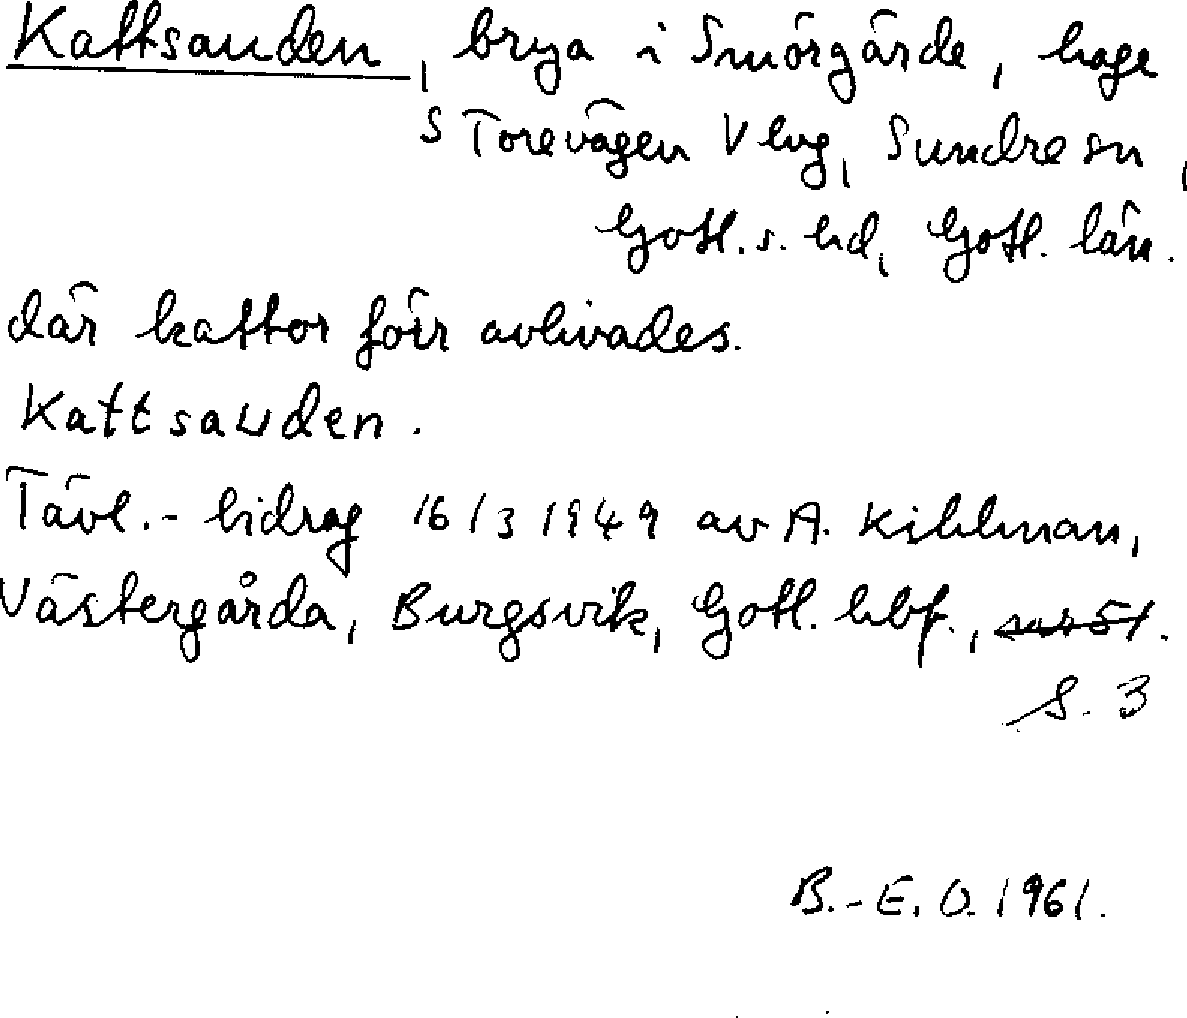 Kattsanden, brya i Smörgärde, hage
S Torevägen V lvg, Sundre sn,
Gotl. s. hd, Gotl. län.
där kattor förr avlivades.
Kattsanden.
Tävl.- bidrag 16/3 1949 av A. Kihlman,
Västergårda, Burgsvik, Gotl. hbf.,
S. 3
B.-E. O. 1961.